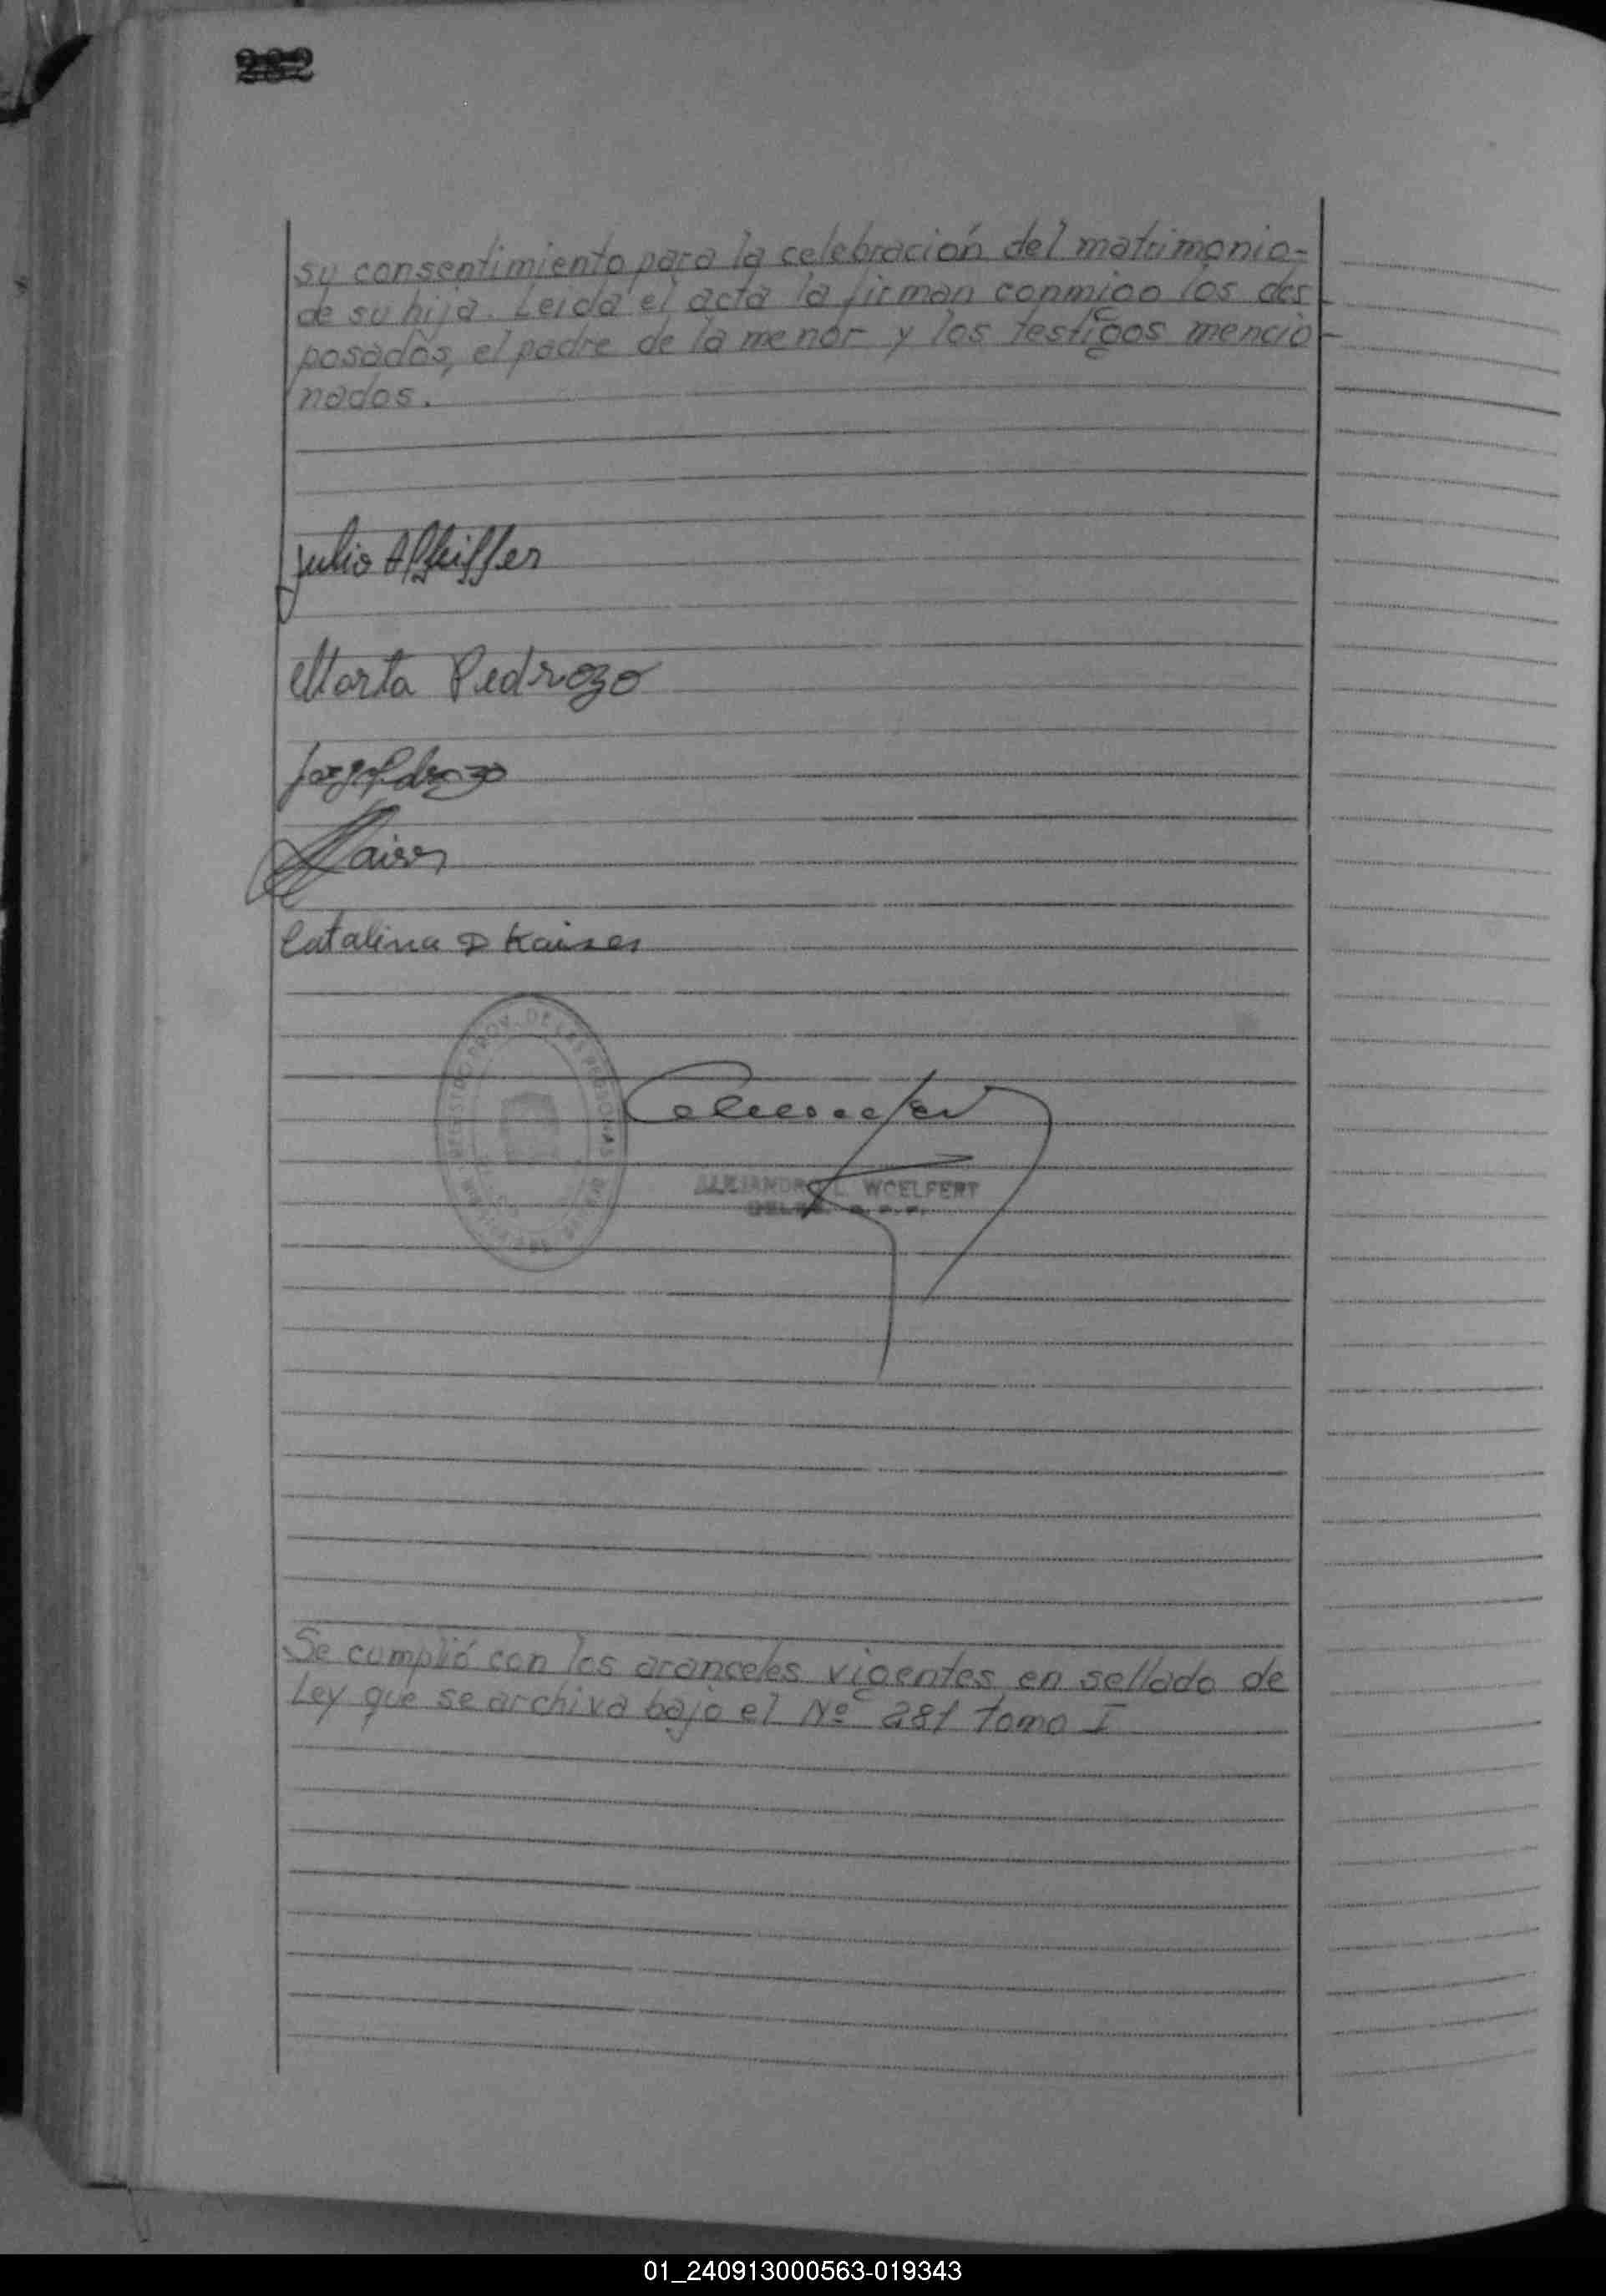 282
su consentimiento para la celebración del matrimonio-
de su hija. Leída el acta la firman conmigo los des-
posados, el padre de la menor y los testigos mencio-
nados.
Julio A Pfeiffer
Marta Pedrozo
Jorge Pedrozo
Kaiser
Catalina D Kaiser
REGISTRO PROV. DE LAS PERSONAS
ALEJANDRO L. WOELFERT
Se cumplió con los aranceles vigentes en sellado de
Ley que se archiva bajo el Nº 281 Tomo I
01_240913000563-019343